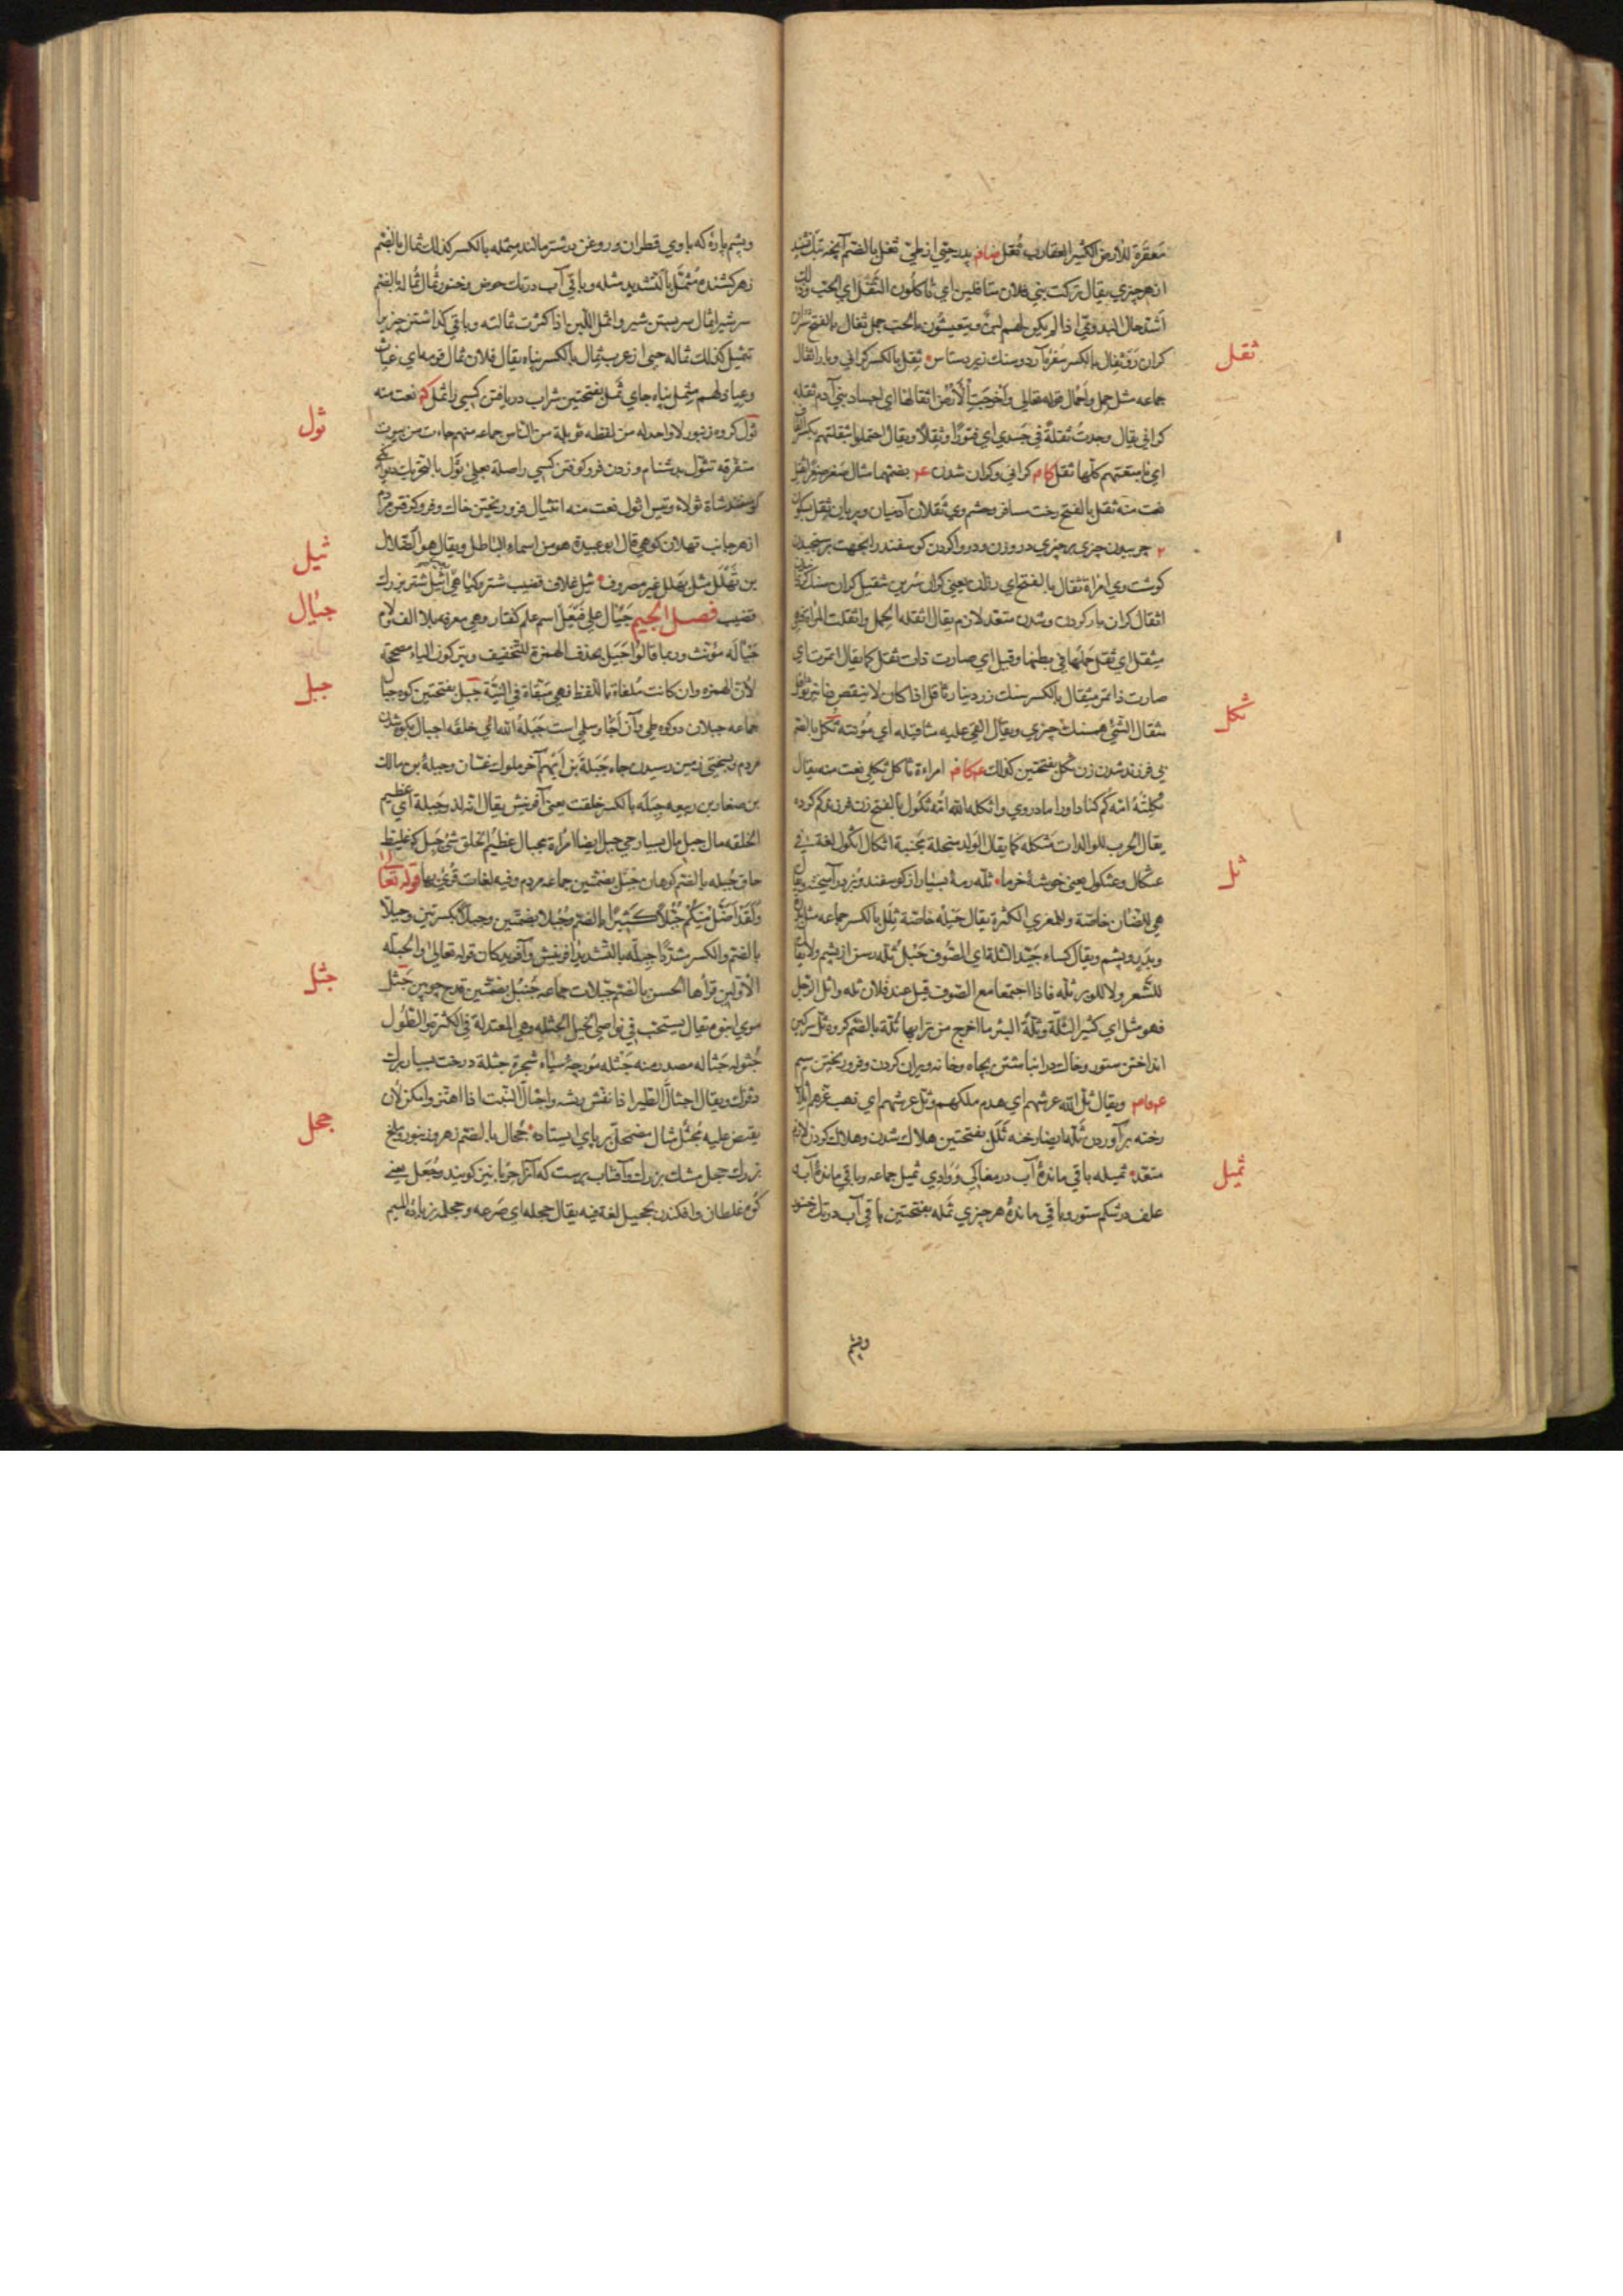 معقرة للارض الکثیر العقارب ثعل پدر حیّی از طیّ ثفل بالضم آنچه تک نشیند
از هر چیزی یقال ترکت بنی فلان متثافلین ای یأکلون الثفل ای الحَبّ وذلک
اشد حال البدوی اذا لم یکن لهم لبن ویتعیشون بالحبّ جمل ثفال بالفتح شتر
کران رو ثفال بالکسر سفرهٔ آرد و سنک زیر دستاس ثقل بالکسر کرانی وبار اثقال
ثقل
جماعه مثل حمل واحمال قوله تعالی وأخرجت الأرض اثقالها ای اجساد بنی آدم ثقله
کرانی یقال وجدت ثقلة فی جسدی ای فتورا وثقلا ویقال احتملوا بثقلتهم بکسر القاف
ای بامتعتهم کلها ثقل کرانی وکران شدن
نعت منه ثقل بالفتح رخت مسافر وحشم وی ثقلان آدمیان وپریان ثقل بسکون
چربیدن چیزی بر چیزی در وزن و در وا کردن کوسفند را بجهت برسنجیدن
کوشت وی امراة ثقال بالفتح ای رزان یعنی کران سرین ثقیل کران سنک
اثقال کران بار کردن وشدن متعد لازم یقال اثقله الحمل واثقلت المرأة فهی
مثقل ای ثقل حملها فی بطنها وقیل ای صارت ذات ثقل کما یقال اتمرت ای
صارت ذا تمر مثقال بالکسر سنک زر دینار ثاقل اذا کان لا ینقص
مثقال الشئ همسنک چیزی ویقال القی علیه مثاقیله ای مؤنته ثکل بالضم
ثکل
بی فرزند شدن زن ثکل بفتحتین کذلک امراءة ثاکل ثکلی نعت منه یقال
ثکلته امّه کم کناد او را مادر وی واثکله الله امّه ثکول بالفتح زن فرزند کم کرده
یقال الحرب للوالدات مثکله کما یقال الولد مبخلة مجبنة اثکال اثکول لغة فی
عثکال وعثکول یعنی خوشهٔ خرما ثلّه رمهٔ بسیار از کوسفند
ثل
هی للضان خاصّة وللمعزی الکثیرة یقال حیله خاصّة ثلل بالکسر جماعه مثل
وبدر وپشم ویقال کساء جیّد الثلة ای الصوف حبل ثلّه رسن از پشم ولا یقال
للشعر ولا للوبر ثلّه فاذا اجتمعا مع الصوف قیل عند فلان ثله واثل الرجل
فهو مثل ای کثیر الثلّة وثلّة البئر ما اخرج من ترابها ثلّة بالضم کروه ثل سرکین
انداختن ستور وخاک در انباشتن بچاه وخانه ویران کردن وفرو ریختن سیم
ویقال ثل الله عرشهم ای هدم ملکهم وثل عرشهم ای ذهب عزهم
رخنه برآوردن ثلّه ایضا رخنه ثلل بفتحتین هلاک شدن وهلاک کردن لازم
متعد ثمیله باقی ماندهٔ آب در مغاکی ووادی ثمیل جماعه وباقی ماندهٔ آب
ثمیل
علف در شکم ستور وباقی ماندهٔ هر چیزی ثمله بفتحتین باقی آب در تک خنور
وپشم
وپشم پارهٔ که با وی قطران وروغن بر شتر مالند مثمله بالکسر کذلک ثمال بالضم
زهر کشنده مثمّل بالتشدید مثله وباقی آب در تک حوض وخنور ثمال ثماله بالضم
سر شیر اثمال سر بستن شیر واثمل اللبن اذا کثرت ثمالته وباقی کذاشتن چیزی را
تثمیل کذلک ثماله حیّی از عرب ثمال بالکسر پناه یقال فلان ثمال قومه ای غیاث
وعماد لهم مثمل پناه جای ثمل بفتحتین شراب دریافتن کسی را ثمل نعت منه
ثول کروه زنبور لا واحد له من لفظه ثویلة من الناس جماعه منهم جاءت من بیوت
ثول
متفرقه تثوّل بدشنام وزدن فرو کوفتن کسی را صلته بعلی ثول بالتحریک دیوانکی
کوسفند شاة ثولاء وتیس اثول نعت منه انثیال فرو ریختن خاک وفرو کوفتن مردم
از هر جانب ثهلان کوهی قال ابو عبیدة هو من اسماء الباطل ویقال هو الضلال
بن ثهلل مثل بهلل غیر مصروف ثیل غلاف قضیب شتر وکیاهی اثیل شتر بزرک
ثیل
قضیب فصل الجیم جیأل علی فیعل اسم علم کفتار وهی معرفه بلا الف لام
جیأل
جیأله مؤنث وربما قالوا جیل بحذف الهمزة للتخفیف ویترکون الیاء مصححة
لان الهمزه وان کانت ملغاة بالفظ فهی مبقاة فی النیّة جبل بفتحتین کوه جبال
جبل
جماعه جبلان دو کوه طی وآن اجأ وسلمی است جبلة الله ای خلقه اجبال بکوه شدن
مردم وبسختی زمین رسیدن چاه جبلة بن ایهم آخر ملوک غسّان وجبلة بن مالک
بن صغار بن ربیعه جبله بالکسر خلقت یعنی آفرینش یقال انه لذو جبلة ای عظیم
الخلقه مال جبل مال بسیار حی جبل ایضا امراة مجبال عظیم الخلق شئ جبل ک غلیظ
جاف جبله بالضم کوهان جبل بضمتین جماعه مردم وفیه لغات قرئ بها قوله تعالی
ولقد اضل منکم جبلا کثیرا بالضم وجبلا بضمتین وجبلا بکسرتین وجبلّا
بالضم والکسر مشددا جبلّه بالتشدید آفرینش وآفریدکان قوله تعالی والجبلة
الأولین قرأها الحسن بالضم جبلات جماعه جنبل بضمتین قدح چوبین جثل
جثل
موی انبوه یقال یستحب فی نواصی الخیل الجثله وهی المعتدلة فی الکثرة والطول
جثوله جثاله مصدر منه جثله مورچهٔ سیاه شجرة جثلة درخت بسیار برک
بزرک ویقال اجثألّ الطیر اذا نفش ریشه واجثألّ النبت اذا اهتز وامکن لان
یقبض علیه مجثئل مثال مضمحلّ بر پای ایستاده جحال بالضم زهر وزنبور وملخ
جحل
بزرک جحل مشک بزرک وآفتاب پرست که آنرا حربا نیز کویند وجعل یعنی
کوه غلطان وافکندن تجحیل لغة فیه یقال جحله ای صرعه وجحلمه بزیادة المیم